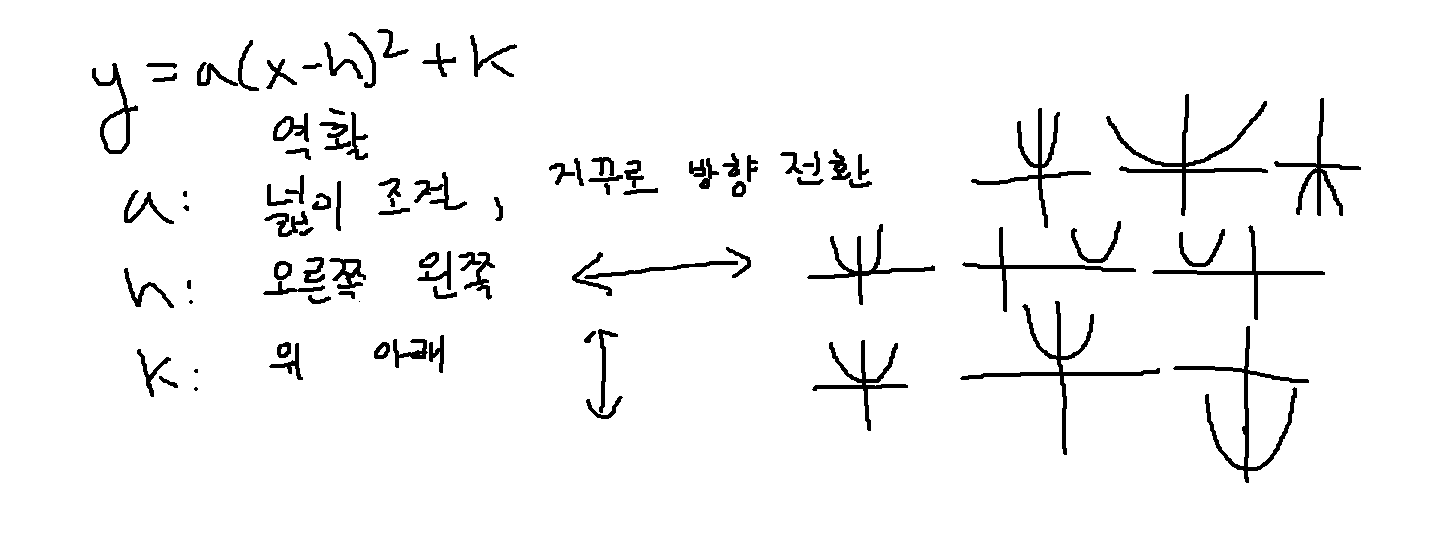 y = a(x-h)² + k
역활
a: 넓이 조절, 거꾸로 방향 전환
h: 오른쪽 왼쪽
k: 위 아래